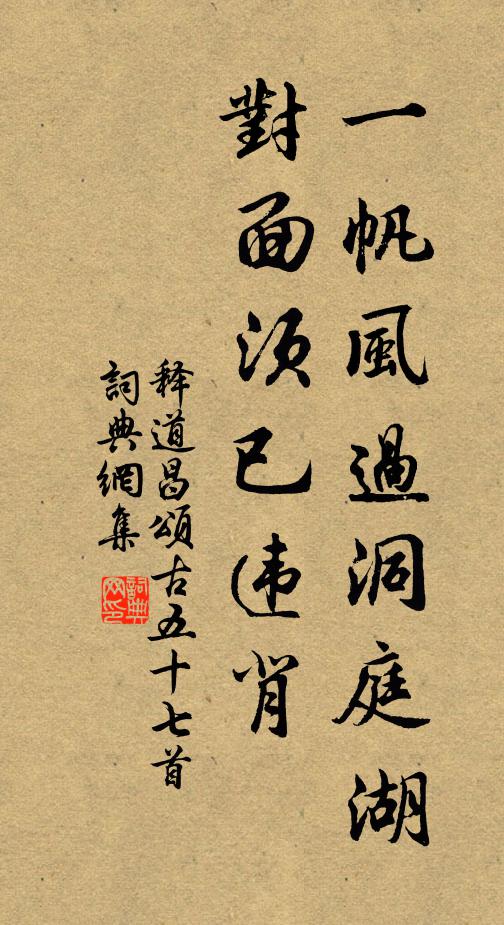 一帆風過洞庭湖
對面须已违背
释道昌頌古五十七首
詞典網集
詞典网印